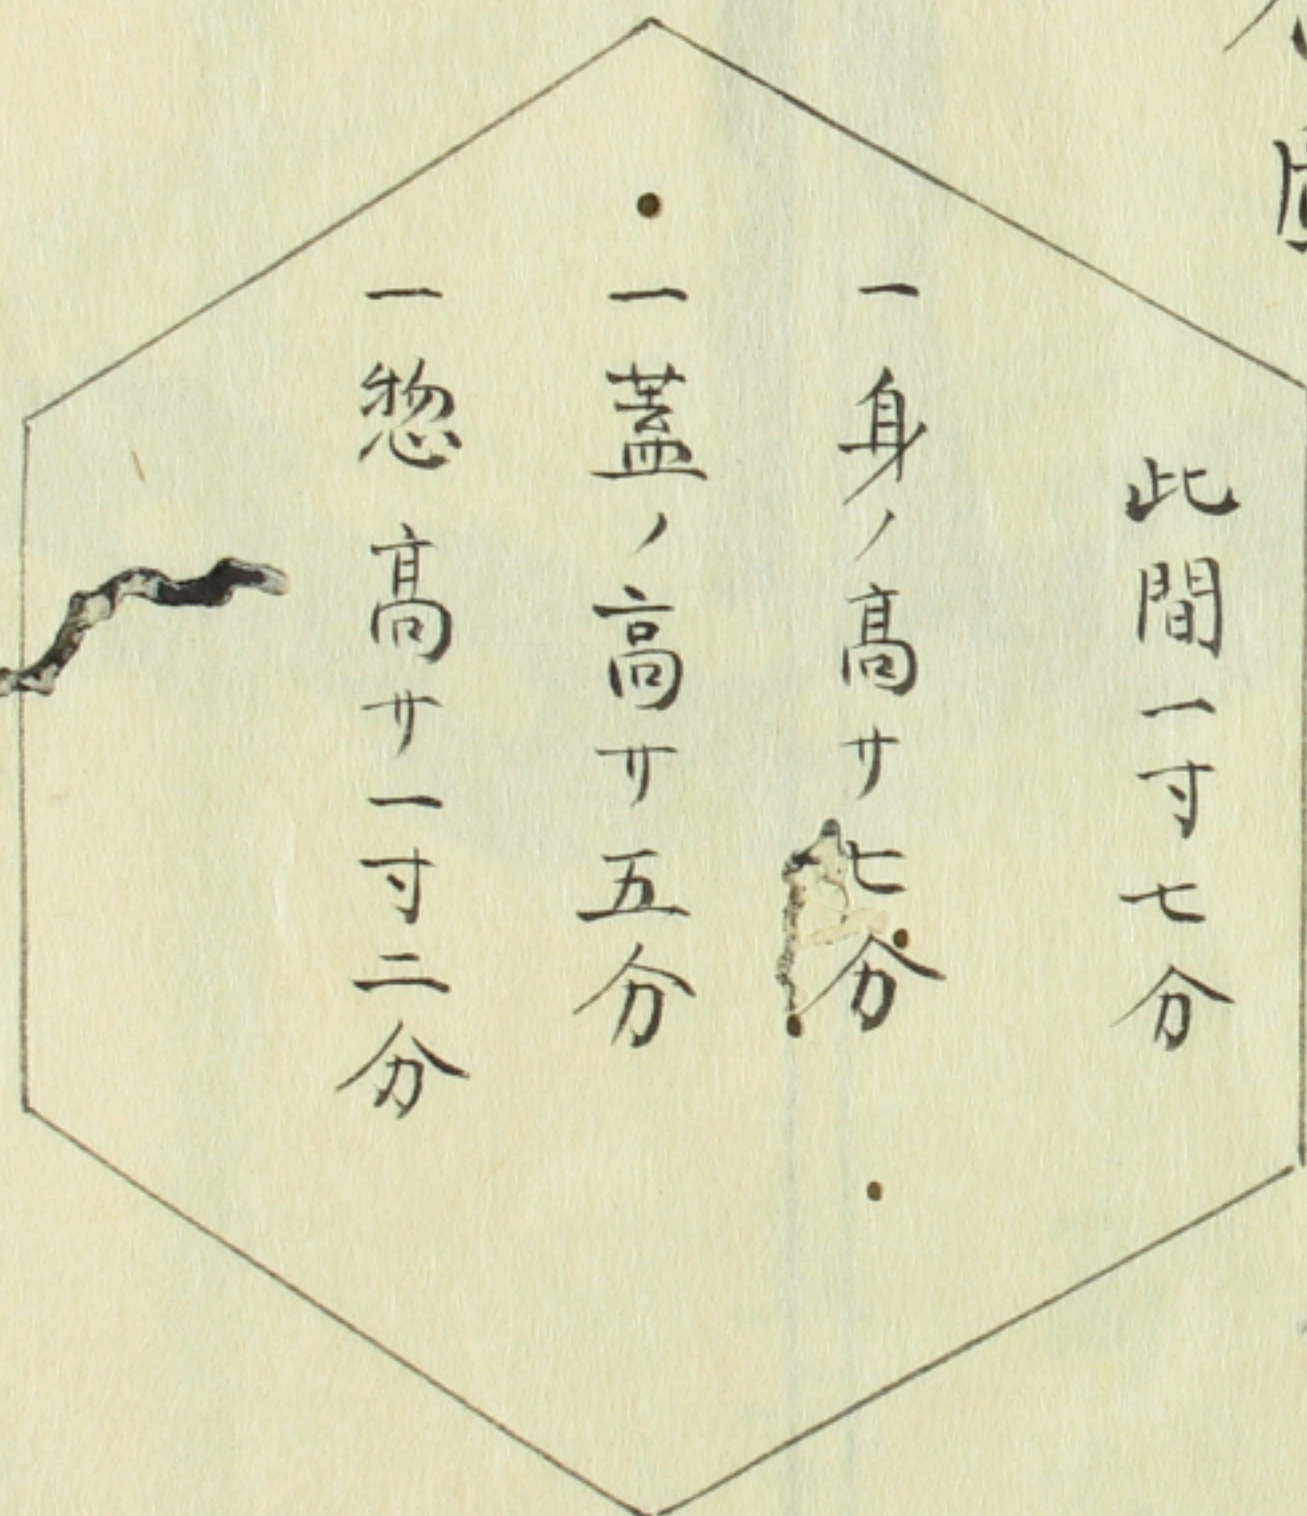 此間一寸七分
一身ノ髙サ七分
一蓋ノ高サ五分
一惣髙サ一寸二分